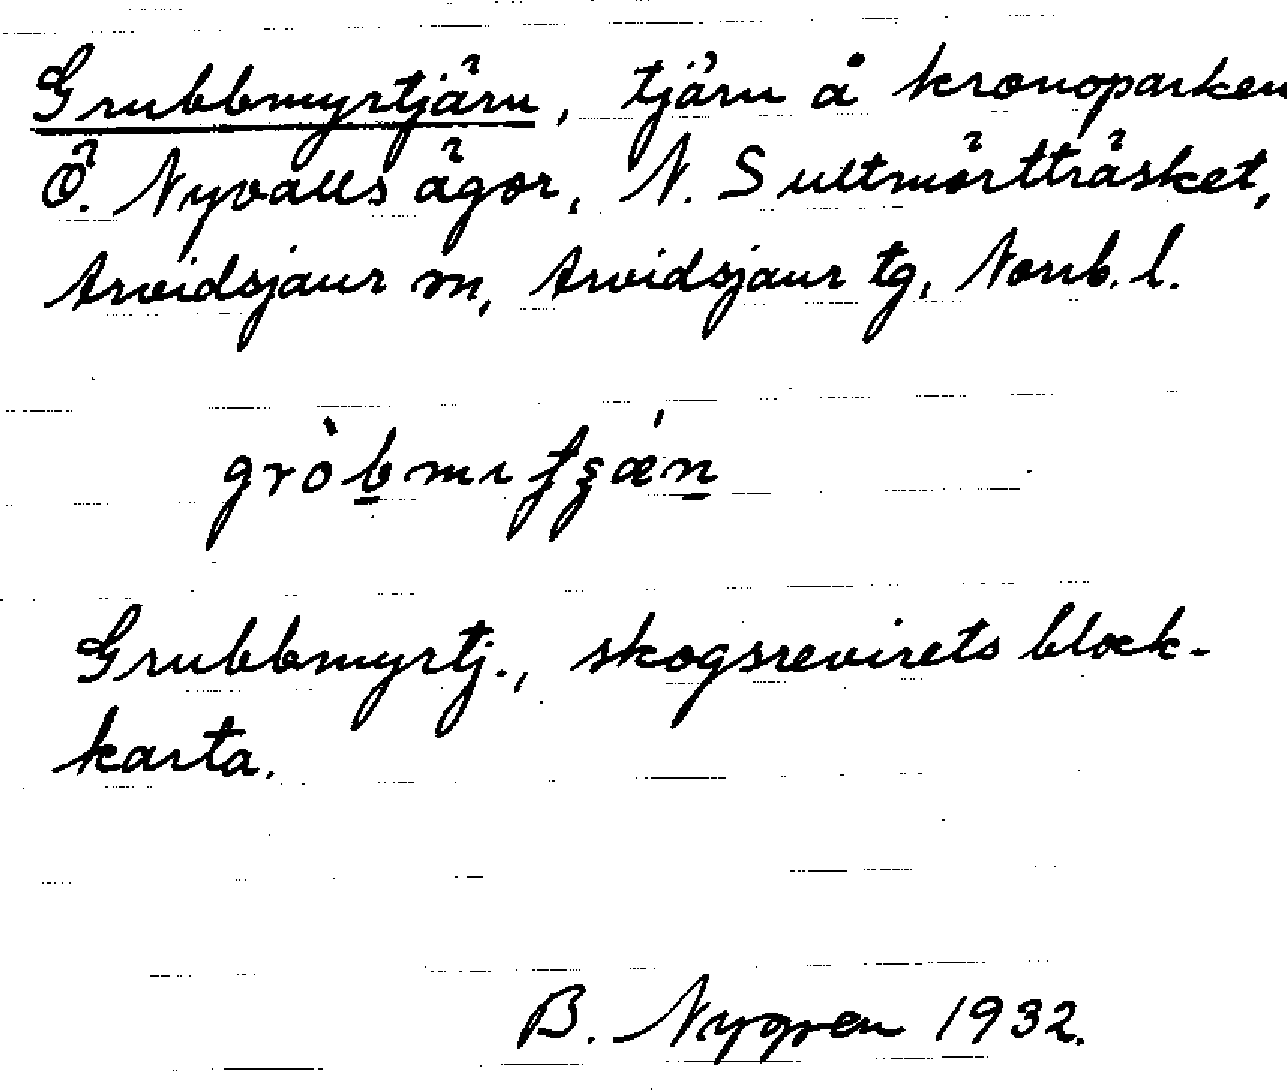 Grubbmyrtjärn, tjärn å kronoparken
Ö. Nyvalls ägor, N. Sultmörtträsket,
Arvidsjaur sn, Arvidsjaur tg, Norrb. l.
gròbmıtʒǽn
Grubbmyrtj., skogsrevirets block-
karta.
B. Nygren 1932.